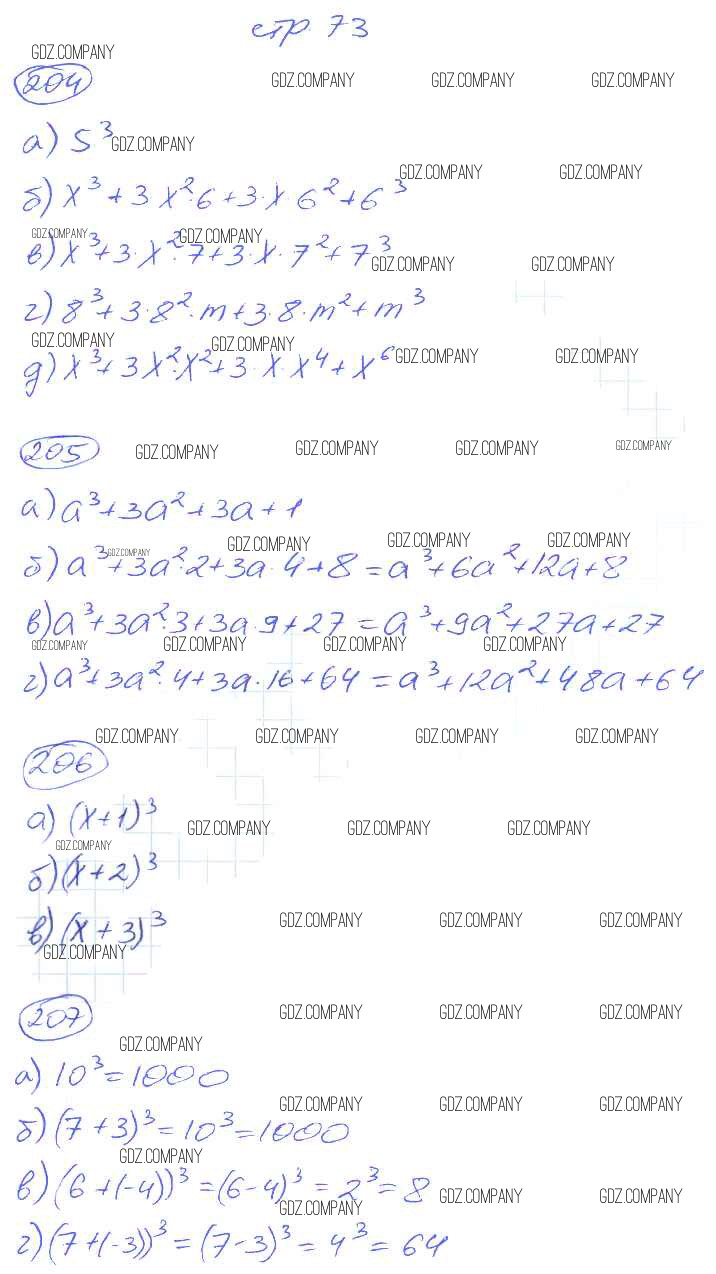 стр. 73
GDZ.COMPANY
204 GDZ.COMPANY GDZ.COMPANY GDZ.COMPANY
а) 5³ GDZ.COMPANY
GDZ.COMPANY GDZ.COMPANY
б) x³ + 3 x²·6 + 3·x·6² + 6³
GDZ.COMPANY GDZ.COMPANY
в) x³ + 3·x²·7 + 3·x·7² + 7³
GDZ.COMPANY GDZ.COMPANY
г) 8³ + 3·8²·m + 3·8·m² + m³
GDZ.COMPANY GDZ.COMPANY
д) x³ + 3x²·x² + 3·x·x⁴ + x⁶ GDZ.COMPANY GDZ.COMPANY
205 GDZ.COMPANY GDZ.COMPANY GDZ.COMPANY GDZ.COMPANY
а) a³ + 3a² + 3a + 1
GDZ.COMPANY GDZ.COMPANY GDZ.COMPANY GDZ.COMPANY
б) a³ + 3a²·2 + 3a·4 + 8 = a³ + 6a² + 12a + 8
в) a³ + 3a²·3 + 3a·9 + 27 = a³ + 9a² + 27a + 27
GDZ.COMPANY GDZ.COMPANY GDZ.COMPANY GDZ.COMPANY
г) a³ + 3a²·4 + 3a·16 + 64 = a³ + 12a² + 48a + 64
GDZ.COMPANY GDZ.COMPANY GDZ.COMPANY GDZ.COMPANY
206
а) (x+1)³ GDZ.COMPANY GDZ.COMPANY GDZ.COMPANY
GDZ.COMPANY
б) (x+2)³
в) (x+3)³ GDZ.COMPANY GDZ.COMPANY GDZ.COMPANY
GDZ.COMPANY
207 GDZ.COMPANY GDZ.COMPANY GDZ.COMPANY
GDZ.COMPANY
а) 10³ = 1000
GDZ.COMPANY GDZ.COMPANY GDZ.COMPANY
б) (7+3)³ = 10³ = 1000
GDZ.COMPANY
в) (6+(-4))³ = (6-4)³ = 2³ = 8 GDZ.COMPANY GDZ.COMPANY
GDZ.COMPANY
г) (7+(-3))³ = (7-3)³ = 4³ = 64